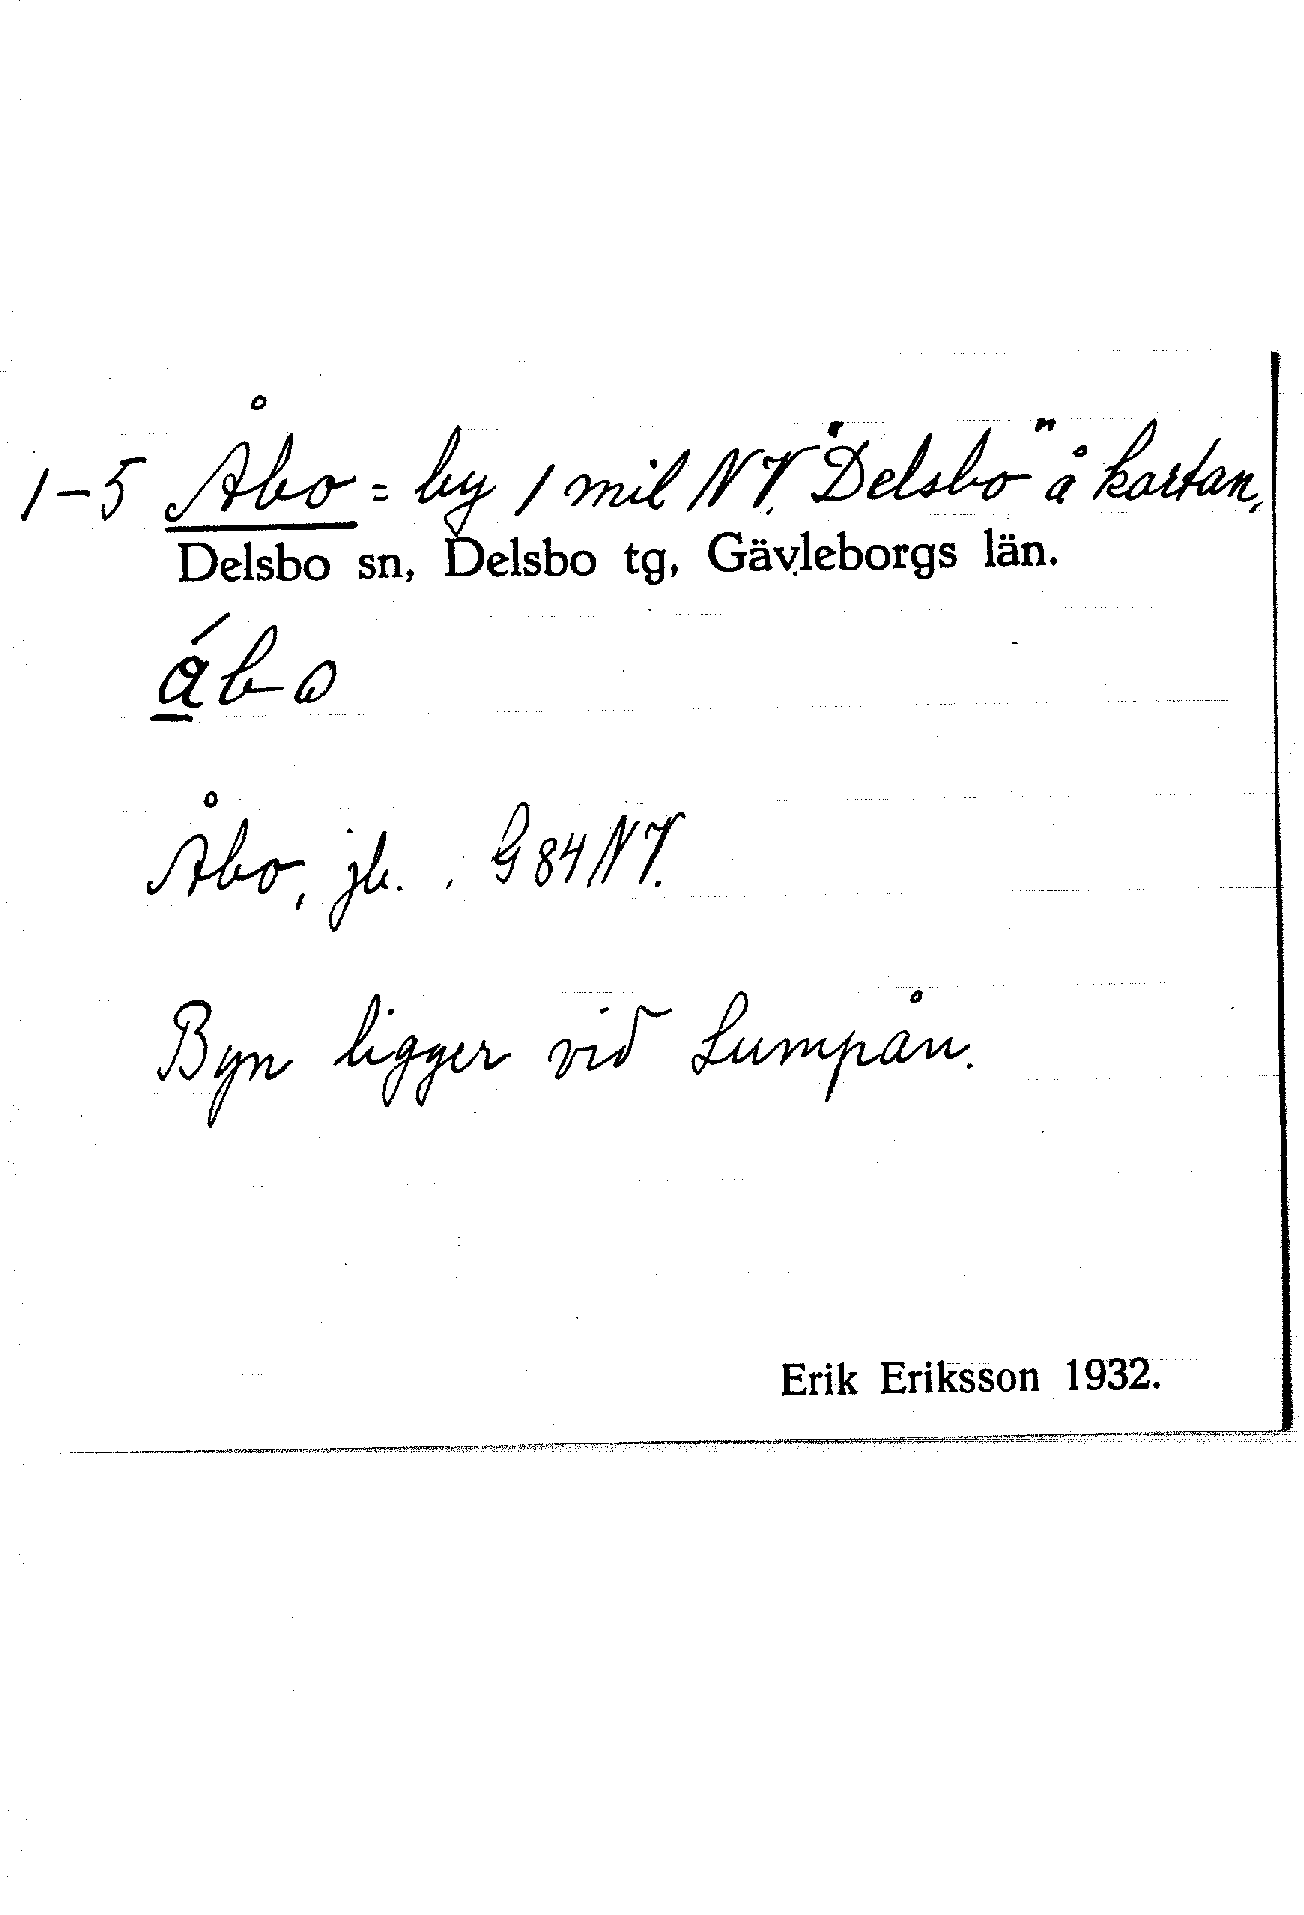 1-5 Åbo = by 1 mil NV. "Delsbo" å kartan,
Delsbo sn, Delsbo tg, Gävleborgs län.
Åbo, jb. . G 84 NV.
Byn ligger vid Lumpån.
Erik Eriksson 1932.